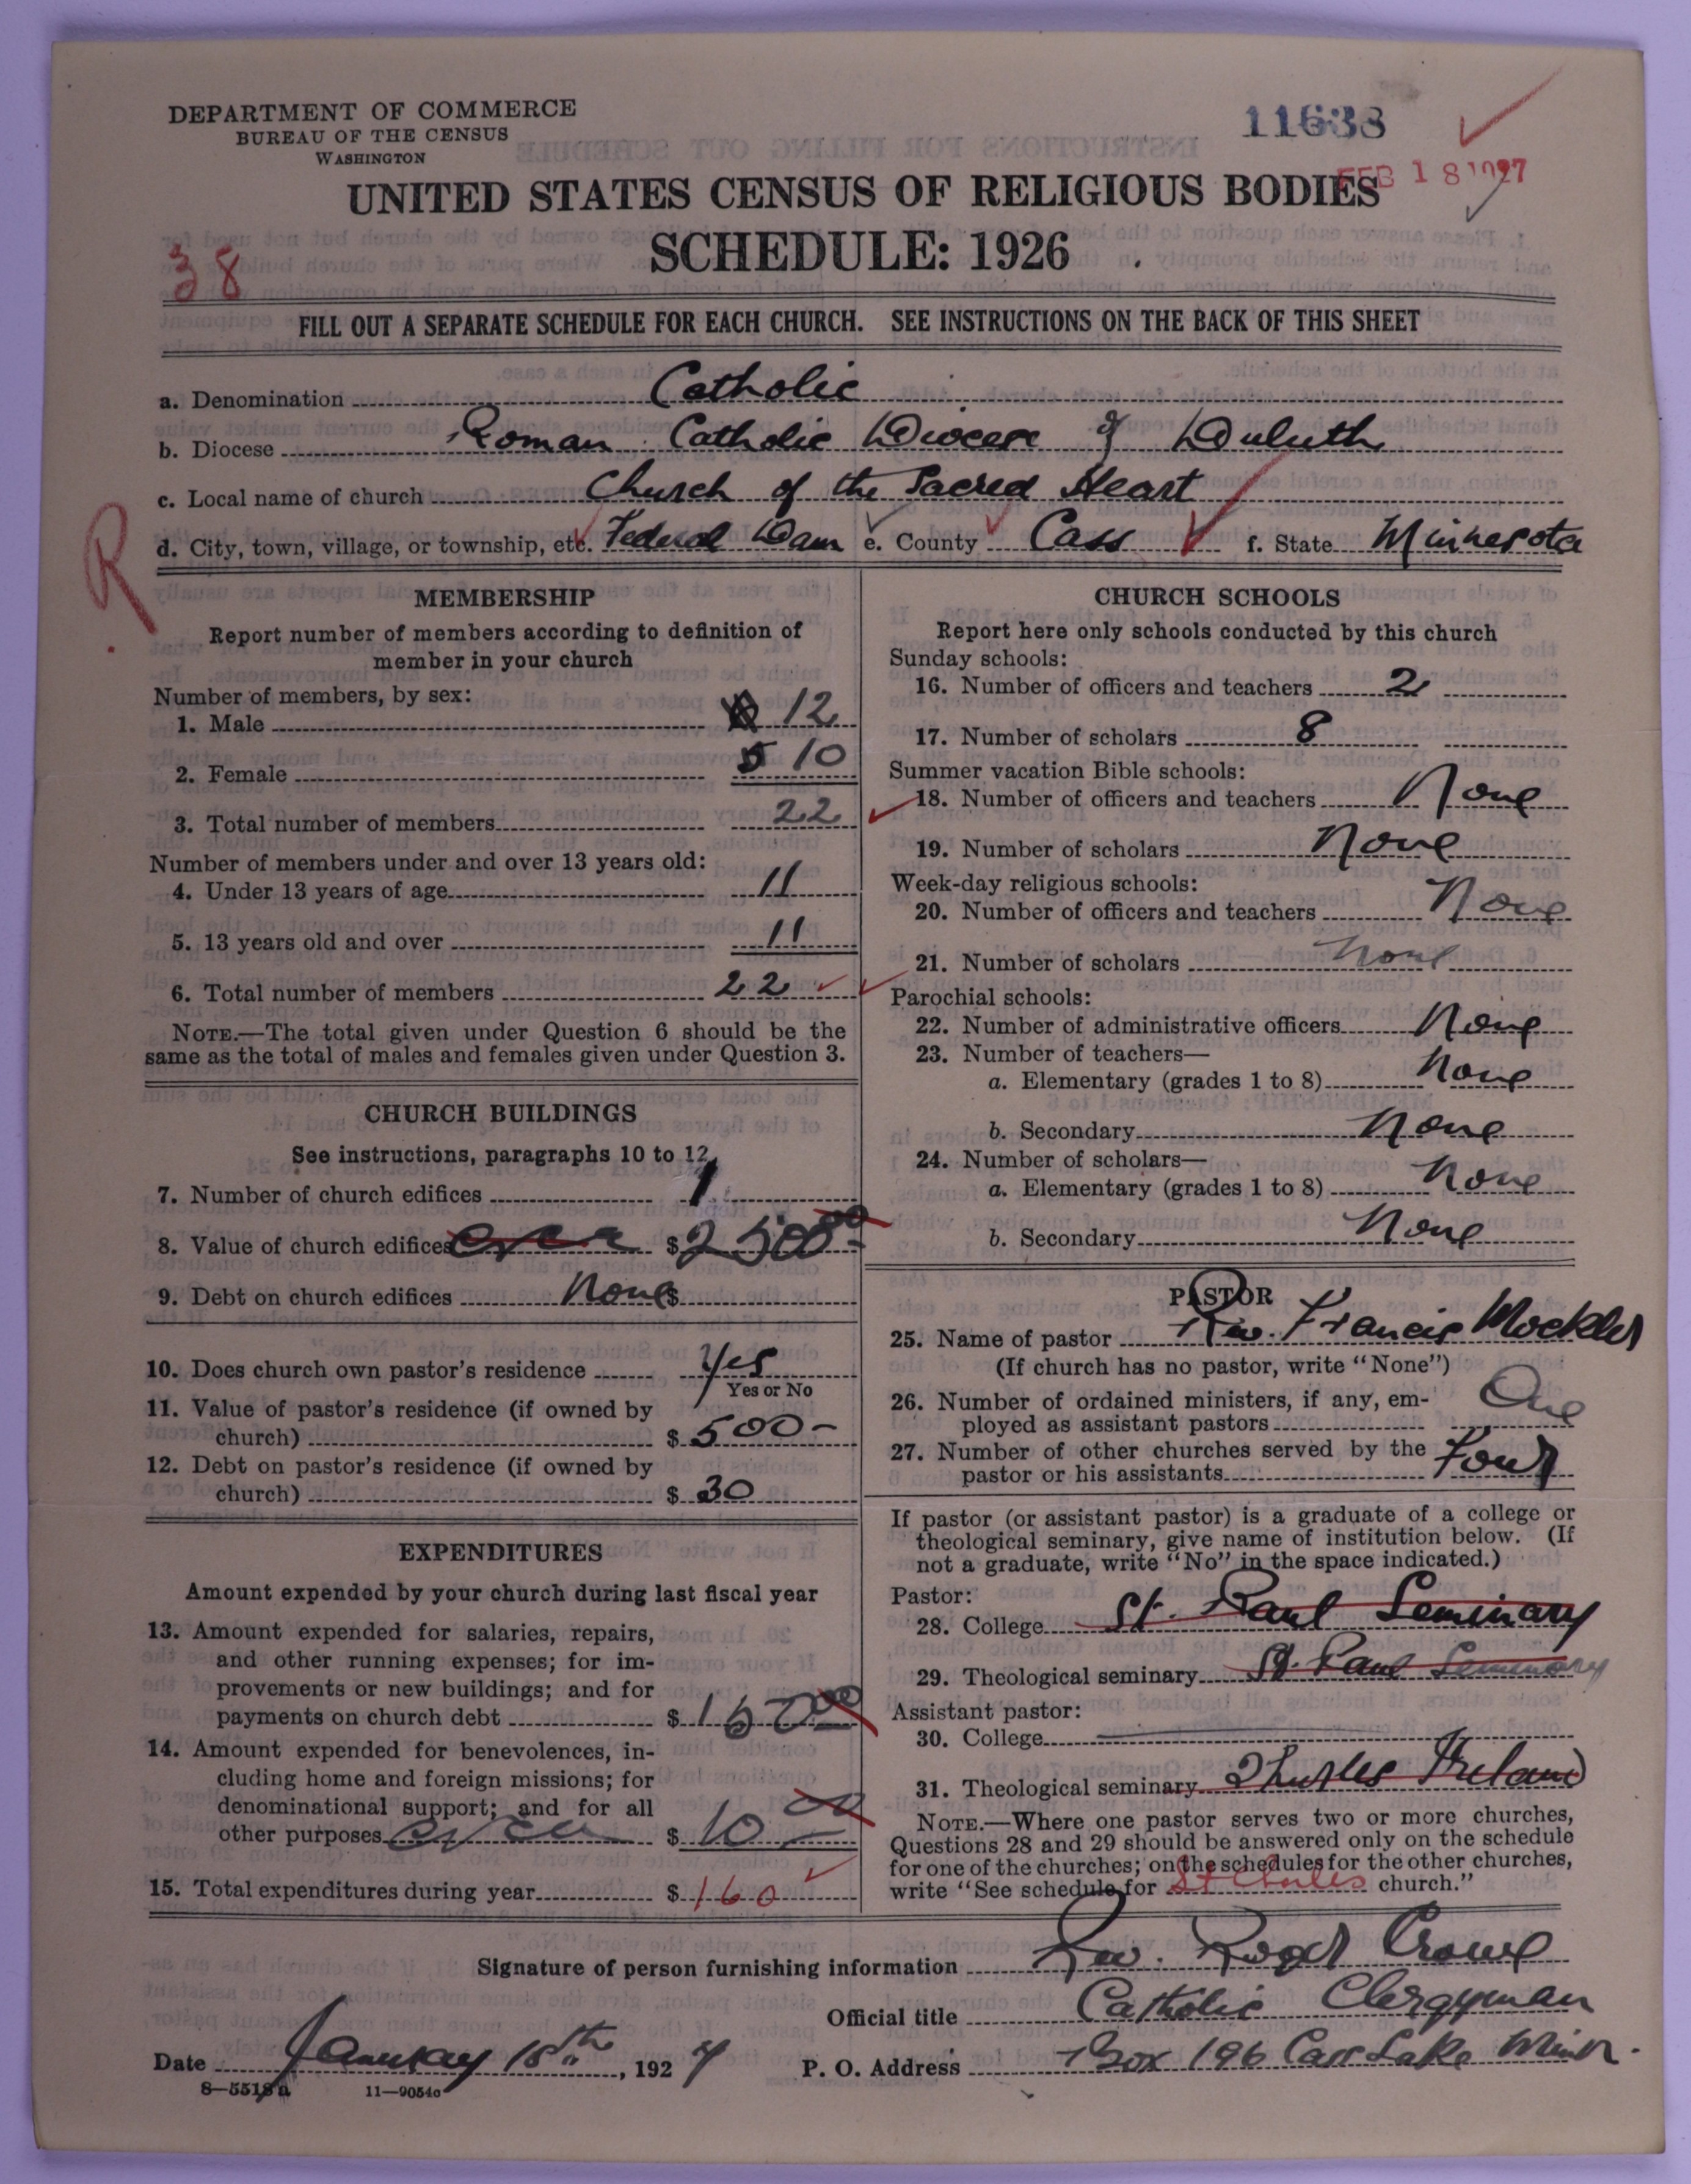 DEPARTMENT OF COMMERCE
BUREAU OF THE CENSUS
WASHINGTON
11638
FEB 18 1927
UNITED STATES CENSUS OF RELIGIOUS BODIES
SCHEDULE: 1926
38
FILL OUT A SEPARATE SCHEDULE FOR EACH CHURCH. SEE INSTRUCTIONS ON THE BACK OF THIS SHEET
a. Denomination Catholic
b. Diocese Roman Catholic Diocese of Duluth
c. Local name of church Church of the Sacred Heart
R
d. City, town, village, or township, etc. Federal Dam e. County Cass f. State Minnesota
MEMBERSHIP
Report number of members according to definition of
member in your church
Number of members, by sex:
1. Male 12
2. Female 10
3. Total number of members 22
Number of members under and over 13 years old:
4. Under 13 years of age 11
5. 13 years old and over 11
6. Total number of members 22
NOTE.—The total given under Question 6 should be the
same as the total of males and females given under Question 3.
CHURCH BUILDINGS
See instructions, paragraphs 10 to 12
7. Number of church edifices 1
8. Value of church edifices circa $2500 00
9. Debt on church edifices None $
10. Does church own pastor's residence Yes
Yes or No
11. Value of pastor's residence (if owned by
church) $500-
12. Debt on pastor's residence (if owned by
church) $30
EXPENDITURES
Amount expended by your church during last fiscal year
13. Amount expended for salaries, repairs,
and other running expenses; for im-
provements or new buildings; and for
payments on church debt $150 00
14. Amount expended for benevolences, in-
cluding home and foreign missions; for
denominational support; and for all
other purposes circa $10 00
15. Total expenditures during year $160
CHURCH SCHOOLS
Report here only schools conducted by this church
Sunday schools:
16. Number of officers and teachers 2
17. Number of scholars 8
Summer vacation Bible schools:
18. Number of officers and teachers None
19. Number of scholars None
Week-day religious schools:
20. Number of officers and teachers None
21. Number of scholars None
Parochial schools:
22. Number of administrative officers None
23. Number of teachers—
a. Elementary (grades 1 to 8) None
b. Secondary None
24. Number of scholars—
a. Elementary (grades 1 to 8) None
b. Secondary None
PASTOR
25. Name of pastor Rev. Francis Mockler
(If church has no pastor, write "None")
26. Number of ordained ministers, if any, em-
ployed as assistant pastors One
27. Number of other churches served by the
pastor or his assistants Four
If pastor (or assistant pastor) is a graduate of a college or
theological seminary, give name of institution below. (If
not a graduate, write "No" in the space indicated.)
Pastor:
28. College St. Paul Seminary
29. Theological seminary St. Paul Seminary
Assistant pastor:
30. College
31. Theological seminary Thurles Ireland
NOTE.—Where one pastor serves two or more churches,
Questions 28 and 29 should be answered only on the schedule
for one of the churches; on the schedules for the other churches,
write "See schedule for St Charles church."
Signature of person furnishing information Rev. Roger Crowe
Official title Catholic Clergyman
Date January 15th, 1927 P. O. Address Box 196 Cass Lake Minn.
8—5518a 11—9054c